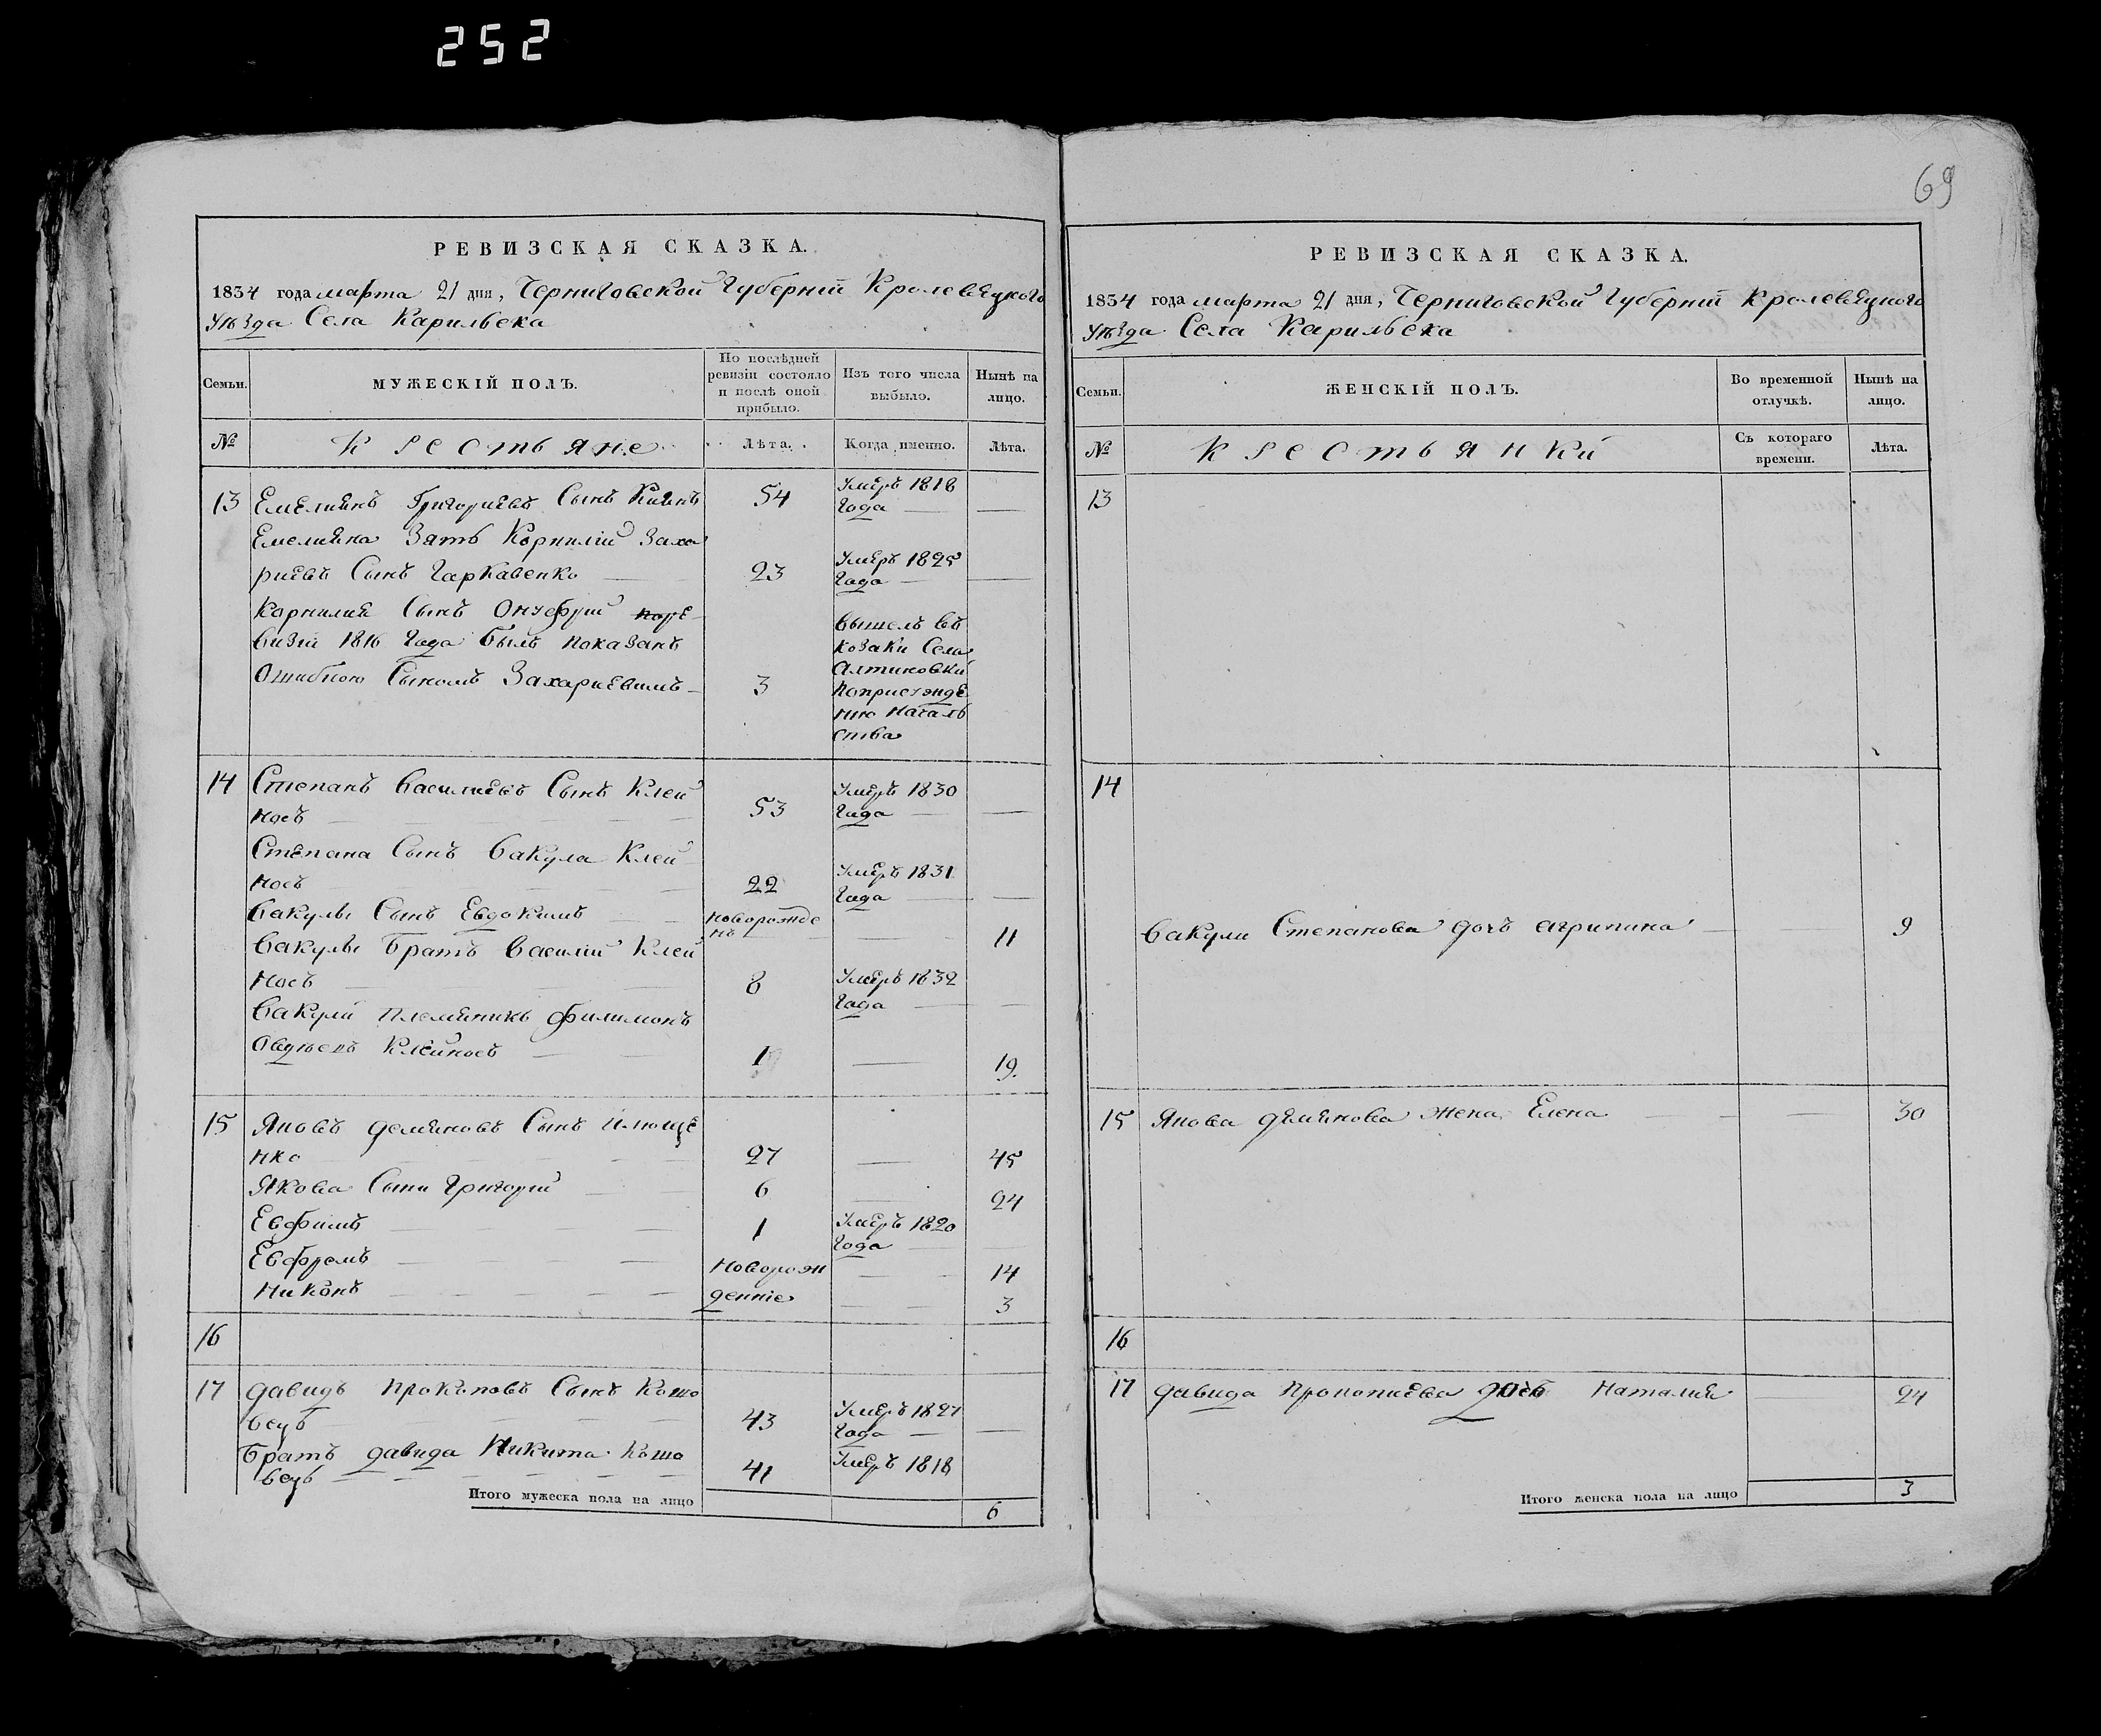 252
69
РЕВИЗСКАЯ СКАЗКА.
1834 года марта 21 дня, Черниговской Губерніи Кролевѣцкого
уѣзда Села Карильска
Семьи.
МУЖЕСКІЙ ПОЛЪ.
По послѣдней
ревизіи состояло
и послѣ оной
прибыло.
Изъ того числа
выбыло.
Нынѣ на
лицо.
№
Крестьяне
Лѣта.
Когда именно.
Лѣта.
13 Емелиянъ Григориевъ Сынъ 54 Умеръ 1818
Года
Емелияна Зять Корнилій Заха
риевъ Сынъ Гаркавенко 23 Умеръ 1825
Года
Корнилия Сынъ Онуфрій поре-
визіи 1816 Года былъ показанъ
Ошибкою Сыномъ Захариевимъ 3
вышелъ въ
козаки Села
Алтиновки
попристанде
нию началь
ства
14 Степанъ Василиевъ Сынъ Клей
носъ 53 Умеръ 1830
Года
Степана Сынъ Вакула Клей
носъ 22 Умеръ 1831
Года
Вакулы Сынъ Евдокимъ новорожде
нъ 11
Вакулы братъ Василій Клей
носъ 8 Умеръ 1832
Года
Вакули племянникъ Филимонъ
Клейносъ 1 19.
15 Яковъ Демяновъ Сынъ Илюще
нко 27 45
Якова Сыни Григорій 6 24
Евфимъ 1 Умеръ 1820
Года
Ефремъ новорож 14
Никонъ денніе 3
16
17 Давидъ Прокоповъ Сынъ Кошо
вецъ 43 Умеръ 1827
Года
Братъ Давида Никита Кошо
вецъ 41 Умеръ 1818
Итого мужеска пола на лицо 6
РЕВИЗСКАЯ СКАЗКА.
1834 года марта 21 дня, Черниговской Губерніи Кролевѣцкого
уѣзда Села Карильска
Семьи.
ЖЕНСКІЙ ПОЛЪ.
Во временной
отлучкѣ.
Нынѣ на
лицо.
№
Крестьянки
Съ котораго
времени.
Лѣта.
13
14
Вакули Степанова дочъ Агрипина 9
15 Якова Демянова жена Елена 30
16
17 Давида Прокопиева дочь Наталия 24
Итого женска пола на лицо 3